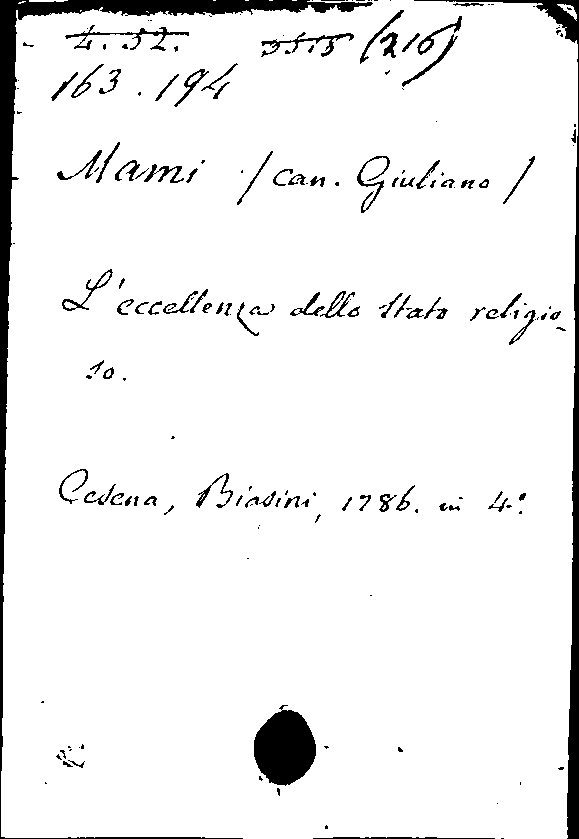 4.52. 35.5 (216)
163.194
Mami /can. Giuliano/
L'eccellenza dello stato religio-
so.
Cesena, Biasini, 1786. in 4°.